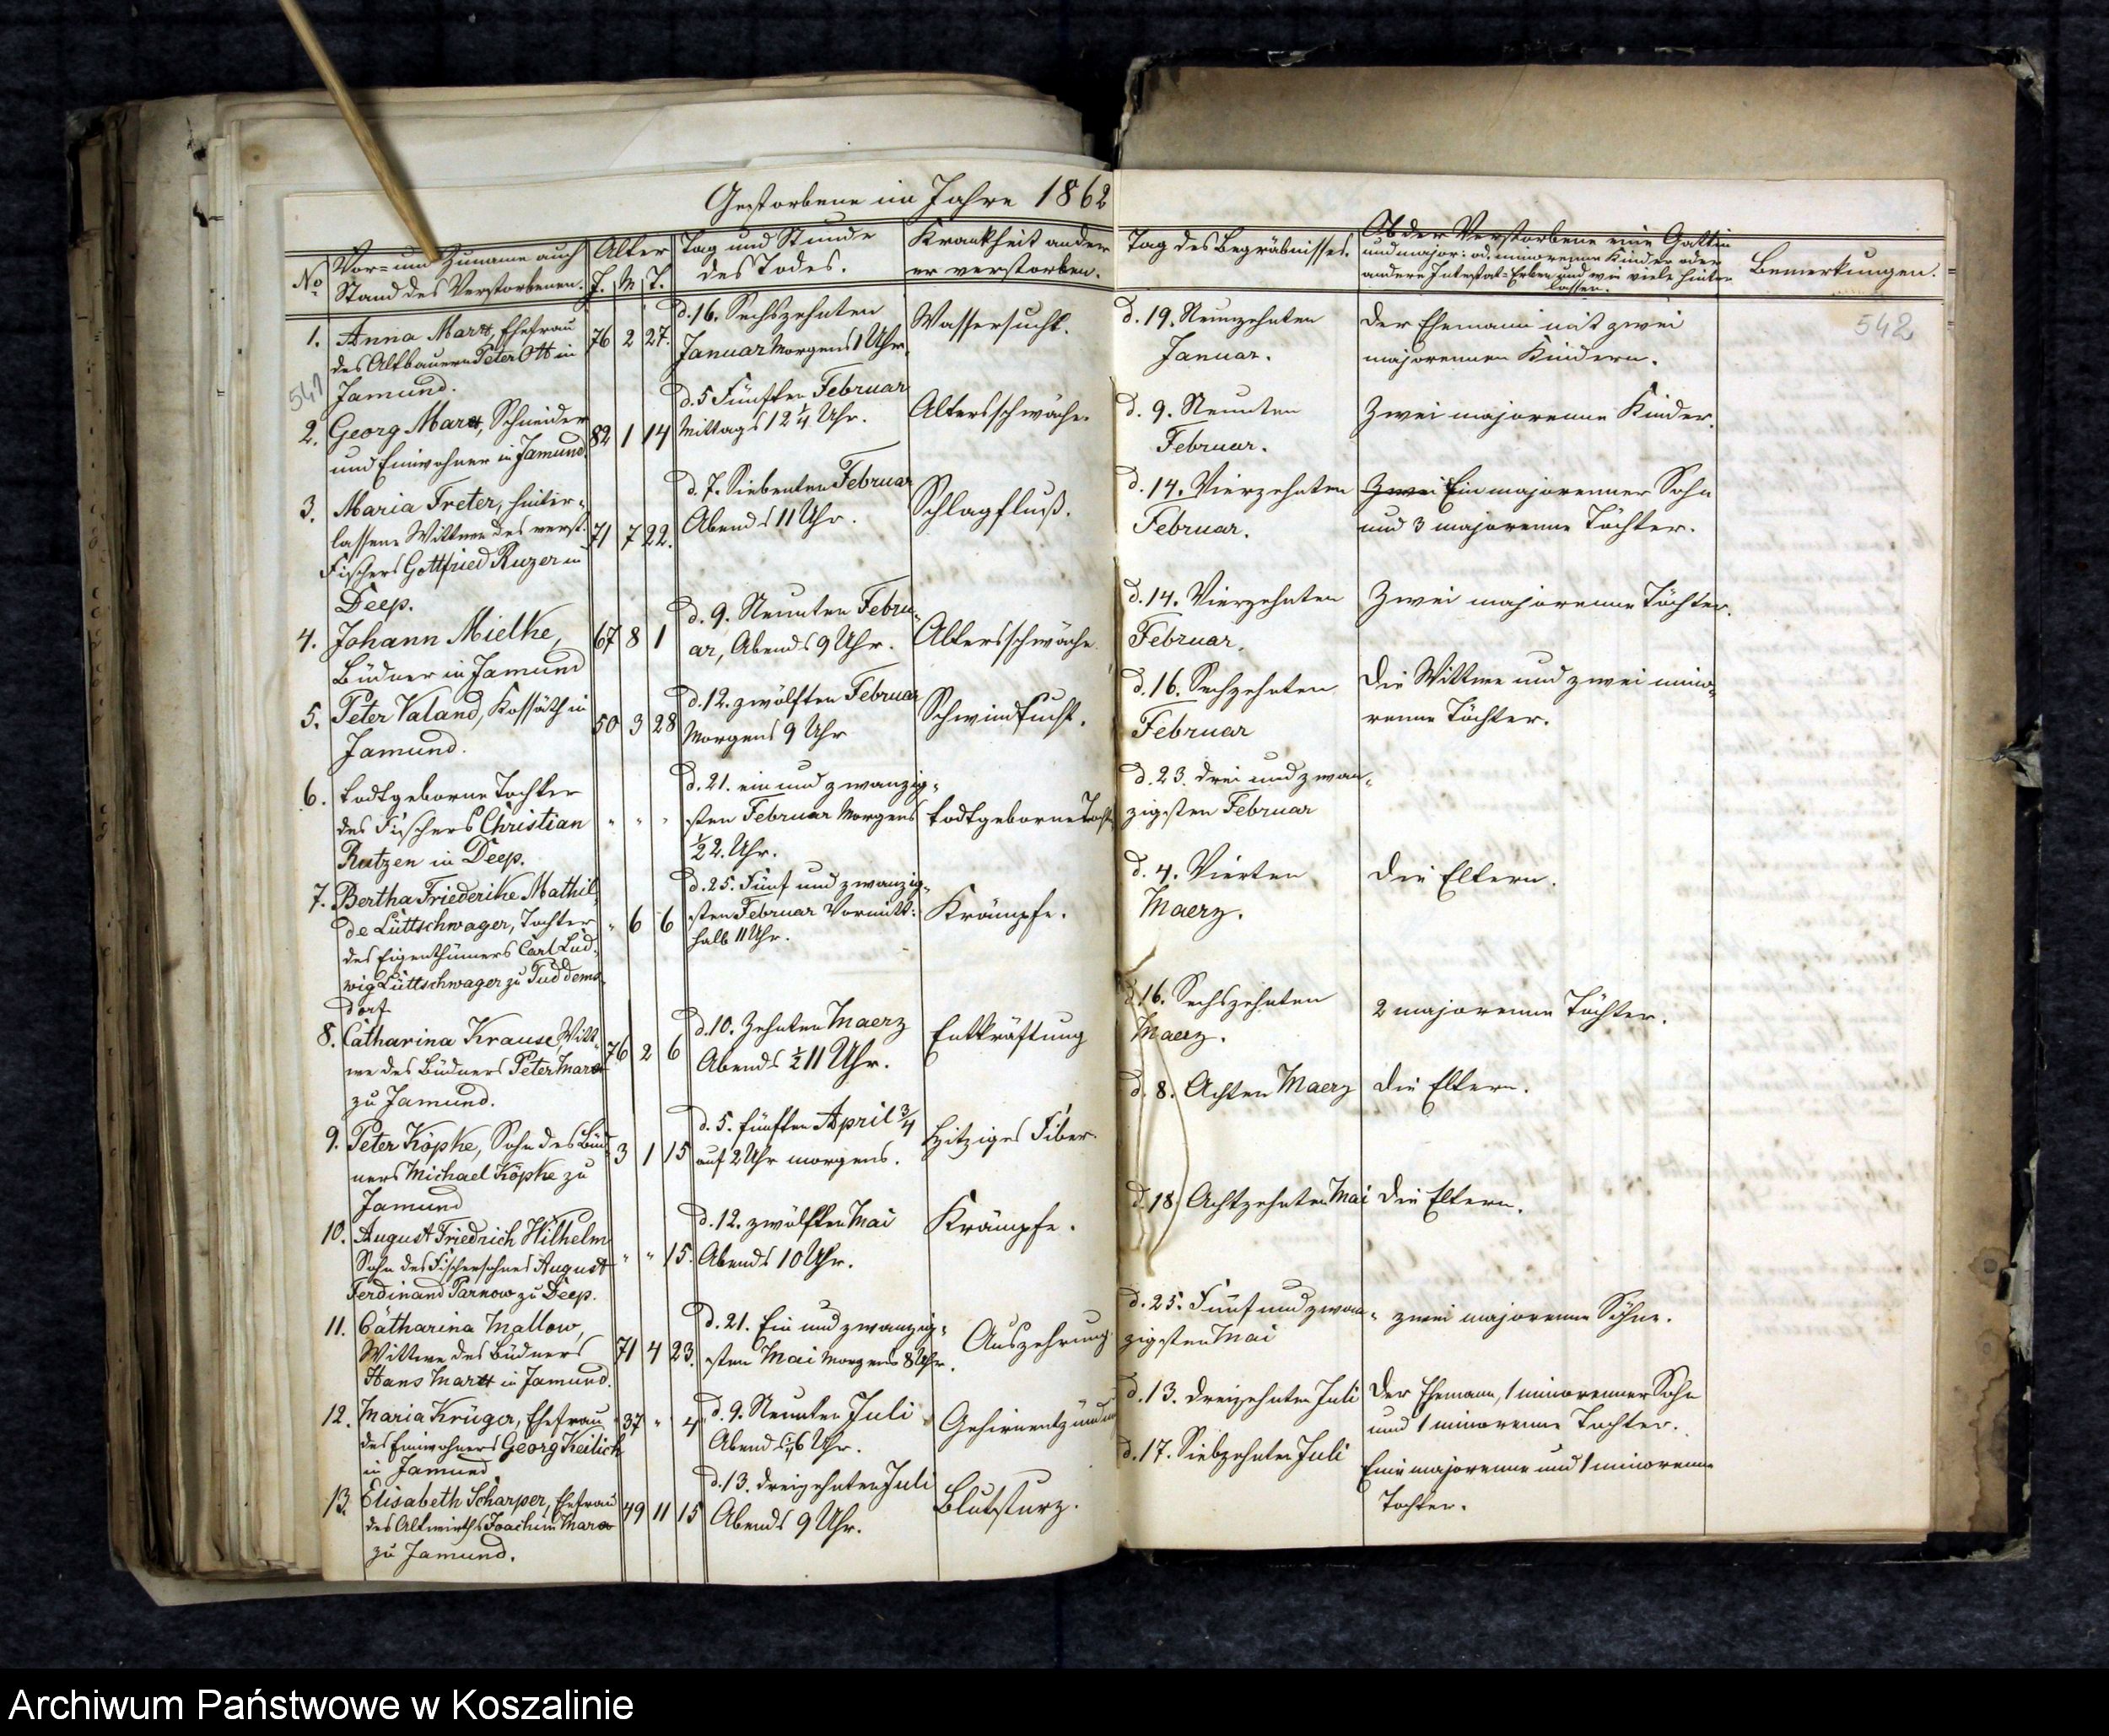 Gestorbene im Jahre 1862
No
Vor- und Zuname auch
Stand des Verstorbenen.
Alter
J. M T.
Tag und Stunde
des Todes.
Krankheit an der
er verstorben.
Tag des Begräbnisses.
Ob der Verstorbene eine Gattin
und major: od. minorenne Kinder oder
andere Intestat-Erben und wie viele hinter
lassen.
Bemerkungen.
541
542
1. Anna Marx, Ehefrau
des Altbauern Peter Ott in
Jamund.
76 2 27.
d. 16. Sechszehnten
Januar Morgens 1 Uhr.
Wassersucht.
d. 19. Neunzehnten
Januar.
Der Ehemann mit zwei
majorennen Kindern.
2. Georg Marx, Schneider
und Einwohner in Jamund.
82 1 14
d. 5 Fünften Februar
Mittags 12 1/4 Uhr.
Altersschwäche.
d. 9. Neunten
Februar.
Zwei majorenne Kinder.
3. Maria Treter, hinter-
lassene Wittwe des verst.
Fischers Gottfried Ruzer in
Deep.
71 7 22.
d. 7. Siebenten Februar
Abends 11 Uhr.
Schlagfluß.
d. 14. Vierzehnten
Februar.
Zwei Ein majorenner Sohn
und 3 majorenne Töchter.
4. Johann Mielke,
Büdner in Jamund
67 8 1
d. 9. Neunten Febru-
ar, Abends 9 Uhr.
Altersschwäche.
d. 14. Vierzehnten
Februar.
Zwei majorenne Töchter.
5. Peter Valand, Kossäth in
Jamund.
50 3 28
d. 12. zwölften Februar
Morgens 9 Uhr
Schwindsucht.
d. 16. Sechzehnten
Februar
Die Wittwe und zwei mino-
renne Töchter.
6. todtgeborne Tochter
des Fischers Christian
Rutzen in Deep.
" " "
d. 21. ein und zwanzig-
sten Februar Morgens
1/2 2. Uhr.
todtgeborne Tocht
d. 23. drei und zwan-
zigsten Februar
7. Bertha Friederike Mathil-
de Lüttschwager, Tochter
des Eigenthümers Carl Lud-
wig Lüttschwager zu Puddems-
dorf
" 6 6
d. 25. Fünf und zwanzig-
sten Februar Vormitt:
halb 11 Uhr.
Krämpfe.
d. 4. Vierten
Maerz.
Die Eltern.
8. Catharina Krause, Witt-
we des Büdners Peter Marx
zu Jamund.
76 2 6
d. 10. Zehnten Maerz
Abends 1/2 11 Uhr.
Entkräftung
d. 16. Sechszehnten
Maerz.
2 majorenne Töchter.
9. Peter Köpke, Sohn des Büd-
ners Michael Köpke zu
Jamund
3 1 15
d. 5. fünften April 3/4
auf 2 Uhr morgens.
Hitziges Fiber.
d. 8. Achten Maerz
Die Eltern.
10. August Friedrich Wilhelm
Sohn des Fischersohnes August
Ferdinand Parnow zu Deep.
" " 15.
d. 12. zwölften Mai
Abends 10 Uhr.
Krämpfe.
d. 18. Achtzehnten Mai
Die Eltern.
11. Catharina Mallow,
Wittwe des Büdners
Hans Marx in Jamund.
71 4 23.
d. 21. Ein und zwanzig-
sten Mai Morgens 8 Uhr.
Auszehrung.
d. 25. Fünf und zwan-
zigsten Mai
zwei majorenne Söhne.
12. Maria Krüger, Ehefrau
des Einwohners Georg Keilich
in Jamund
37 " 4
d. 9. Neunten Juli
Abends 6 Uhr.
Gehirnentzündung
d. 13. dreizehnten Juli
Der Ehemann, 1 minorenner Sohn
und 1 minorenne Tochter.
13. Elisabeth Scharper, Ehefrau
des Altwirths Joachim Marx
zu Jamund.
49 11 15
d. 13. dreizehnten Juli
Abends 9 Uhr.
Blutsturz.
d. 17. Siebzehnten Juli
Eine majorenne und 1 minorenne
Tochter.
Archiwum Państwowe w Koszalinie